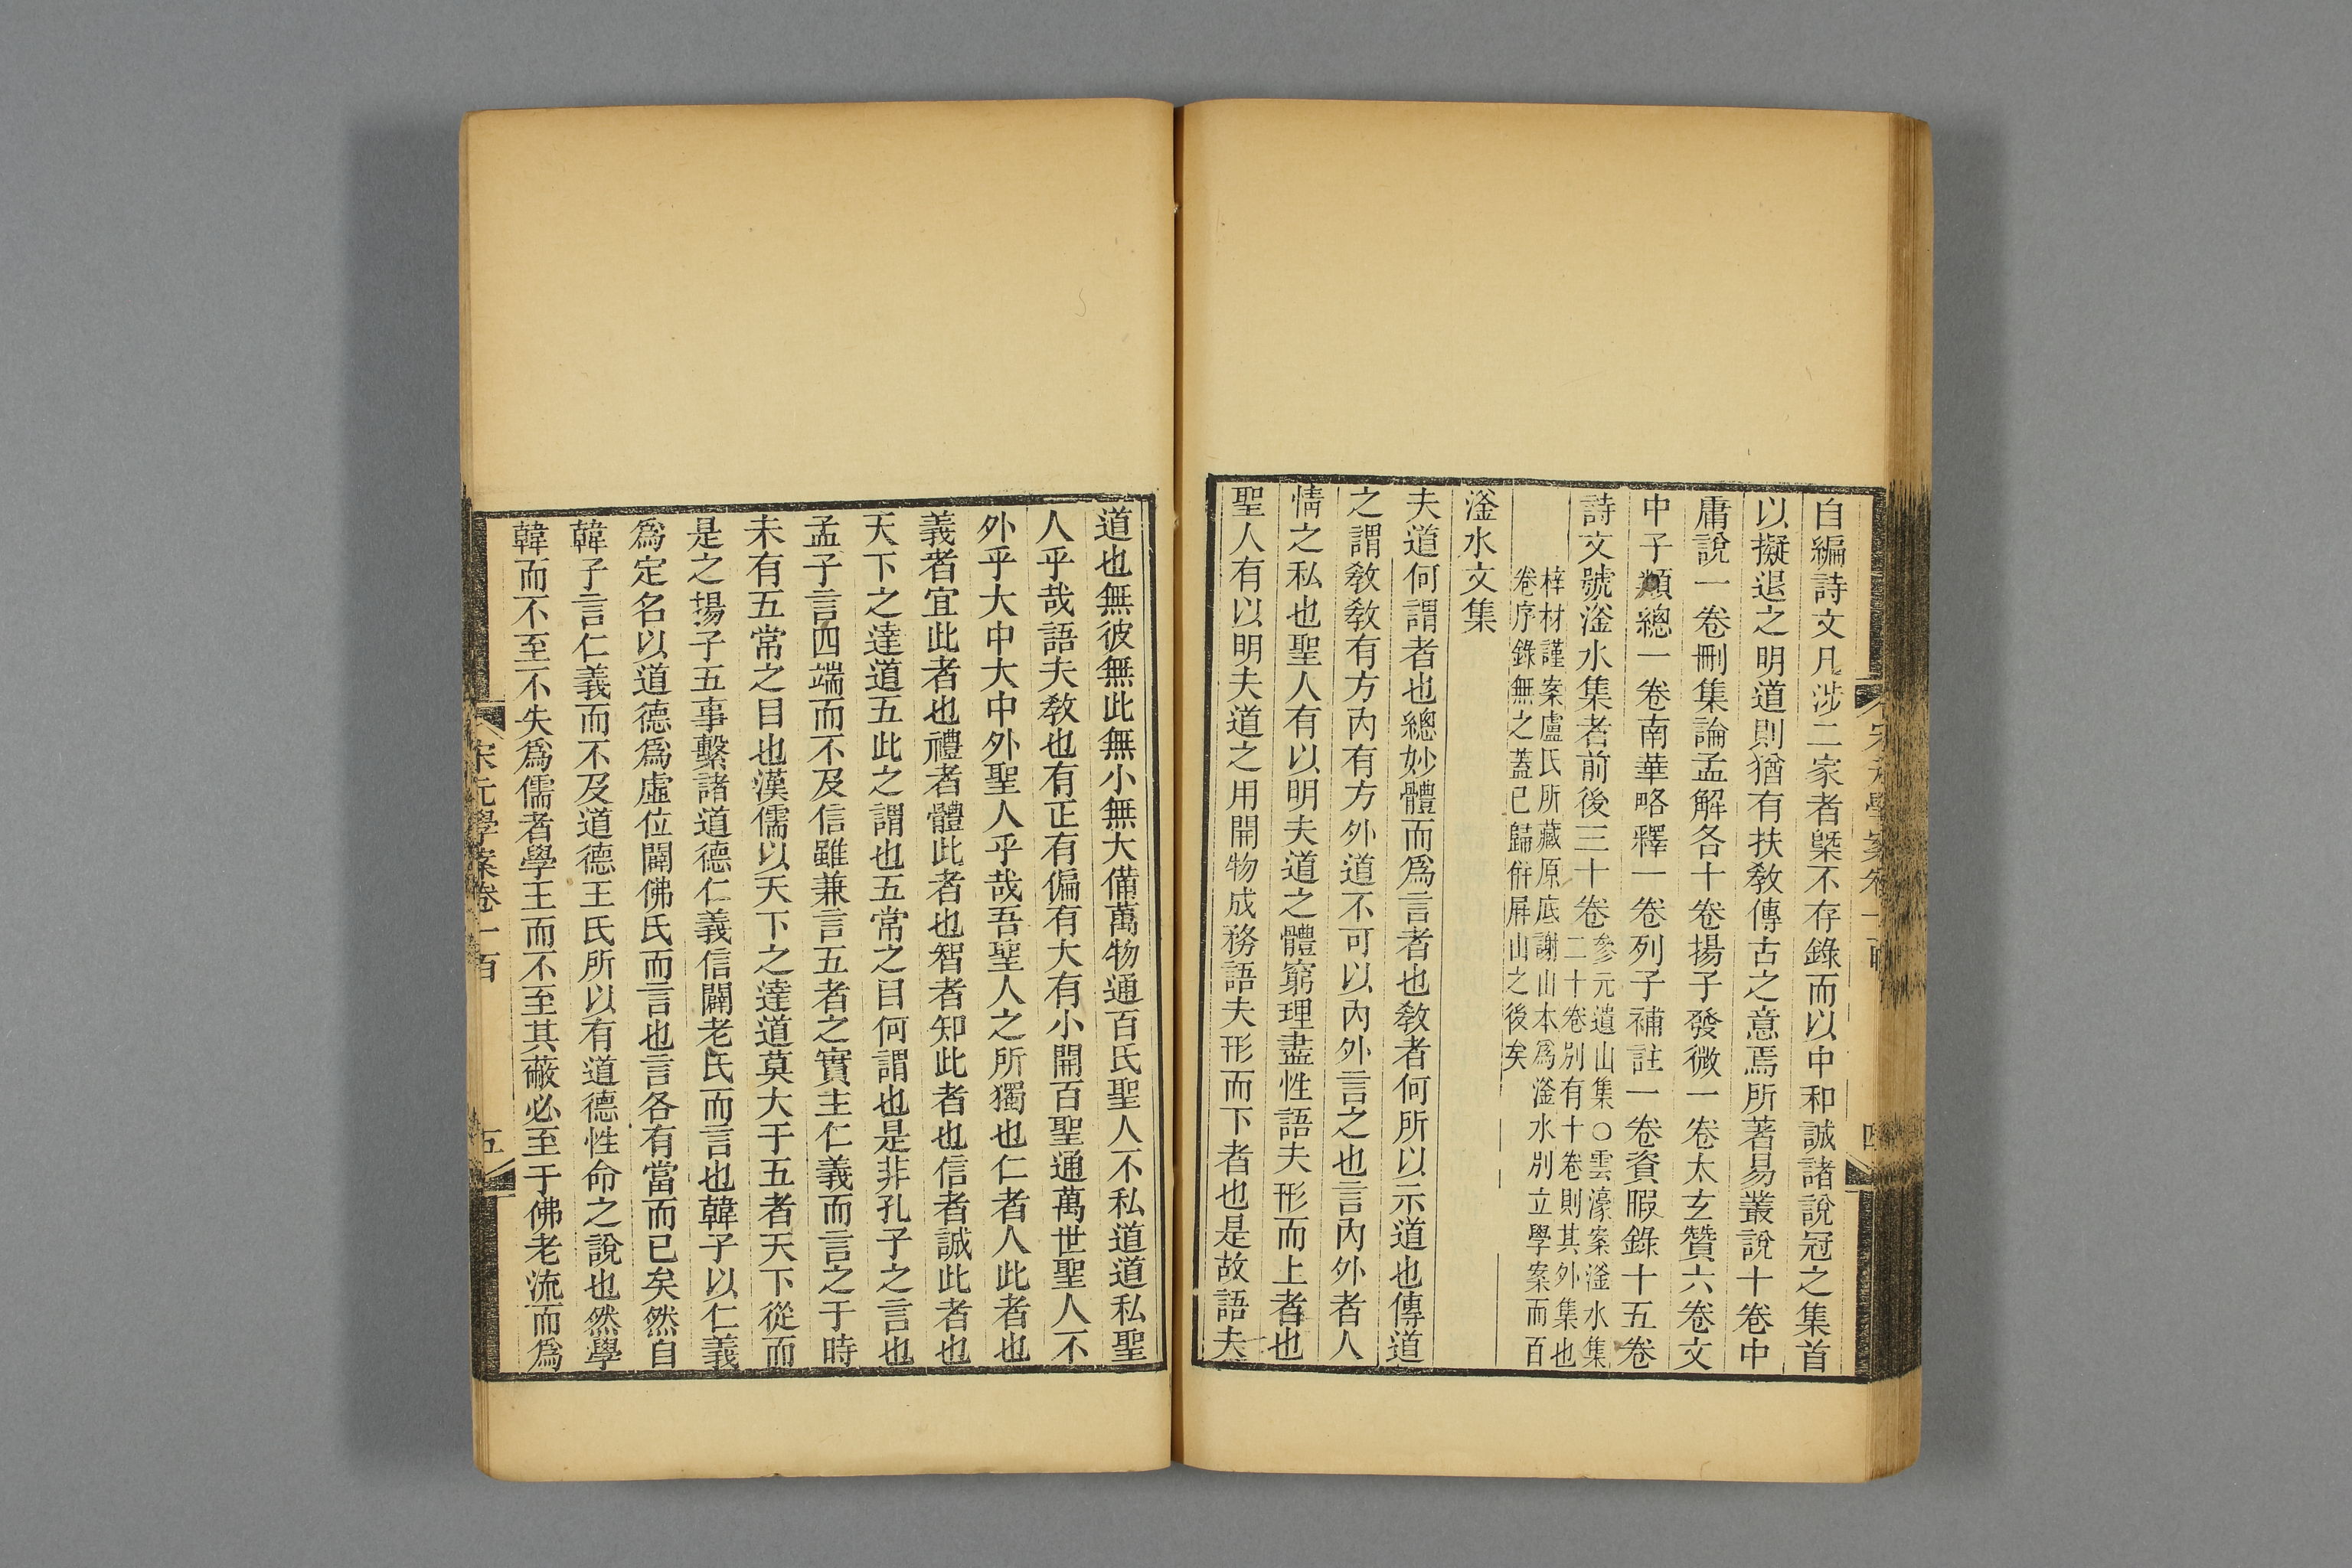 宋元學案卷一百
四
自編詩文凡涉二家者槩不存錄而以中和誠諸說冠之集首
以擬退之明道則猶有扶敎傳古之意焉所著易叢說十卷中
庸說一卷刪集論孟解各十卷揚子發微一卷太玄贊六卷文
中子類總一卷南華略釋一卷列子補註一卷資暇錄十五卷
詩文號滏水集者前後三十卷
參元遺山集○雲濠案滏水集
二十卷別有十卷則其外集也
梓材謹案盧氏所藏原底謝山本爲滏水別立學案而百
卷序錄無之蓋已歸併屛山之後矣
滏水文集
夫道何謂者也總妙體而爲言者也敎者何所以示道也傳道
之謂敎敎有方內有方外道不可以內外言之也言內外者人
情之私也聖人有以明夫道之體窮理盡性語夫形而上者也
聖人有以明夫道之用開物成務語夫形而下者也是故語夫
道也無彼無此無小無大備萬物通百氏聖人不私道道私聖
人乎哉語夫敎也有正有偏有大有小開百聖通萬世聖人不
外乎大中大中外聖人乎哉吾聖人之所獨也仁者人此者也
義者宜此者也禮者體此者也智者知此者也信者誠此者也
天下之達道五此之謂也五常之目何謂也是非孔子之言也
孟子言四端而不及信雖兼言五者之實主仁義而言之于時
未有五常之目也漢儒以天下之達道莫大于五者天下從而
是之揚子五事繫諸道德仁義信闢老氏而言也韓子以仁義
爲定名以道德爲虛位闢佛氏而言也言各有當而已矣然自
韓子言仁義而不及道德王氏所以有道德性命之說也然學
韓而不至不失爲儒者學王而不至其蔽必至于佛老流而爲
宋元學案卷一百
五